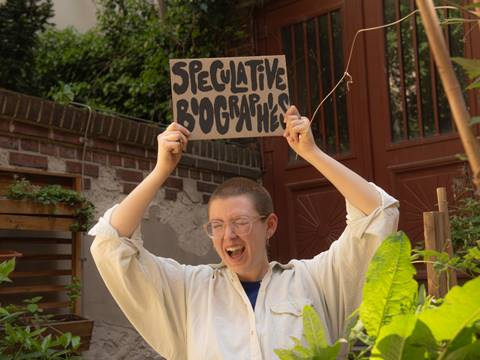 SPECULATIVE
BIOGRAPHIES